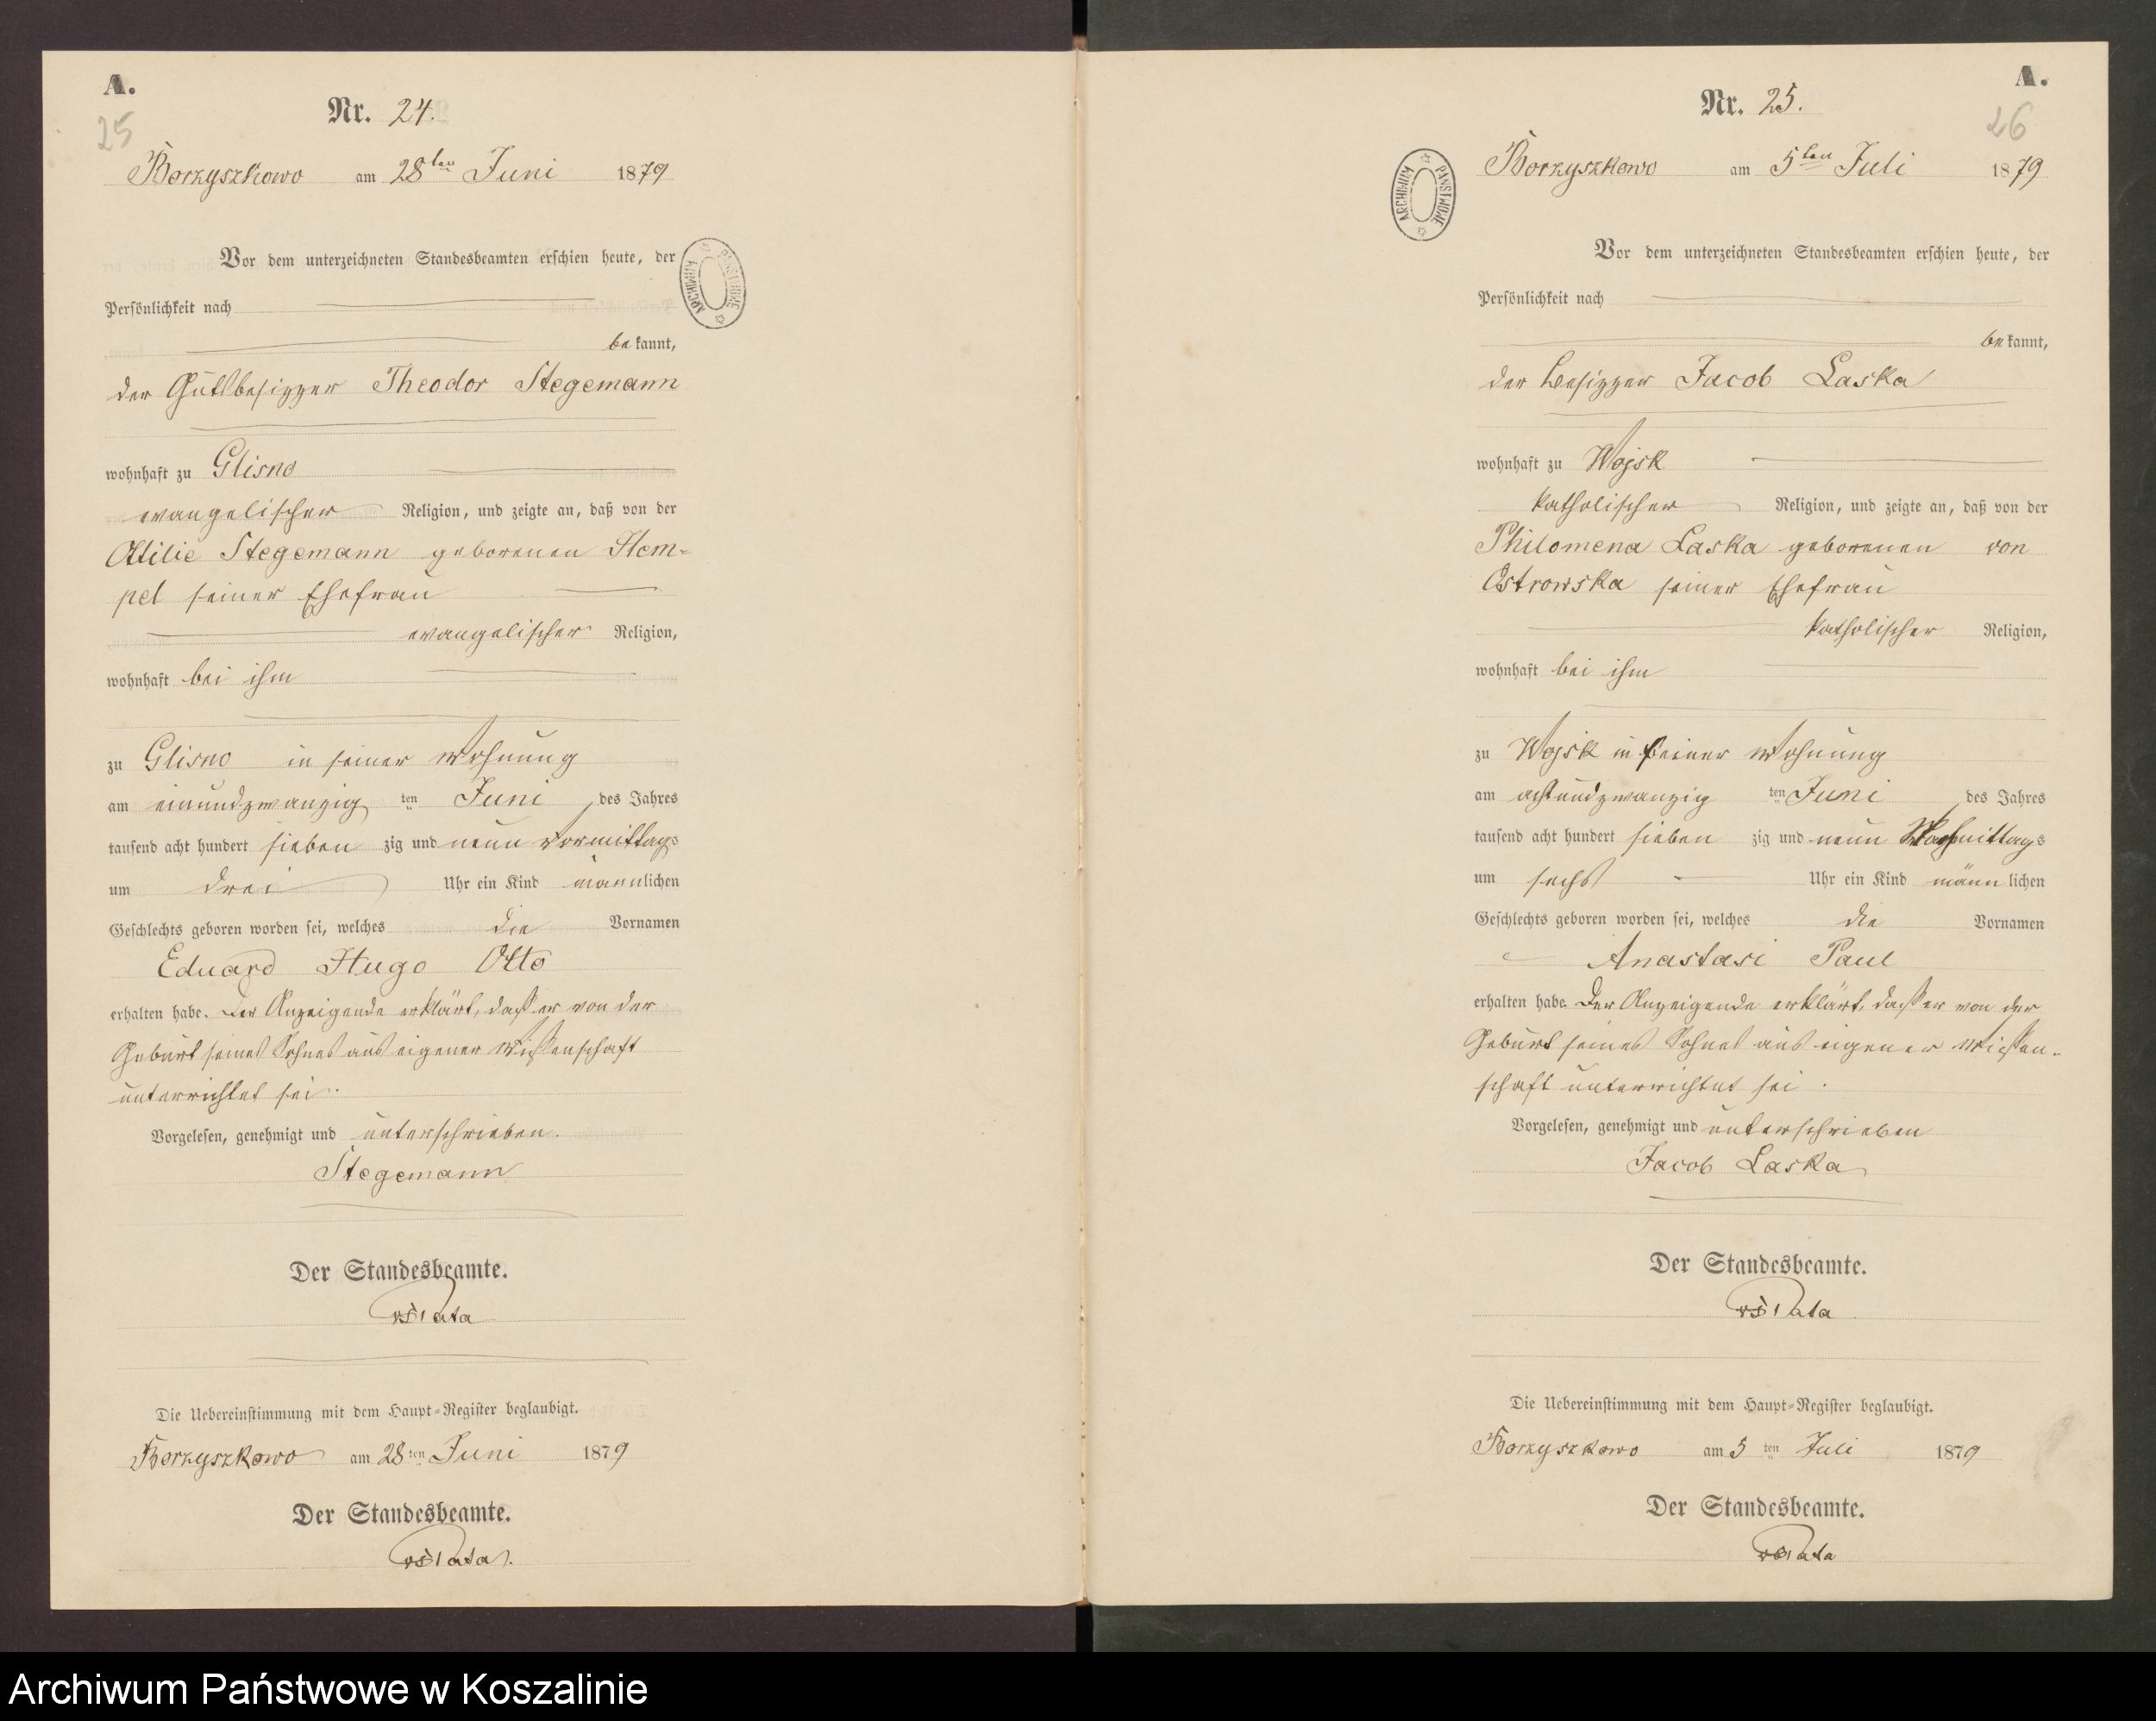 A.
25
Nr. 24.
Borzyszkowo am 28ten Juni 1879
Vor dem unterzeichneten Standesbeamten erschien heute, der
Persönlichkeit nach
bekannt,
der Gutsbesitzer Theodor Stegemann
wohnhaft zu Glisno
evangelischer Religion, und zeigte an, daß von der
Ottilie Stegemann geborenen Hem-
pel seiner Ehefrau
evangelischer Religion,
wohnhaft bei ihm
zu Glisno in seiner Wohnung
am einundzwanzig ten Juni des Jahres
tausend acht hundert sieben zig und neun Vormittags
um drei Uhr ein Kind männlichen
Geschlechts geboren worden sei, welches die Vornamen
Eduard Hugo Otto
erhalten habe. Der Anzeigende erklärt, daß er von der
Geburt seines Sohnes aus eigener Wissenschaft
unterrichtet sei.
Vorgelesen, genehmigt und unterschrieben.
Stegemann
Der Standesbeamte.
Die Uebereinstimmung mit dem Haupt-Register beglaubigt.
Borzyszkowo am 28 ten Juni 1879
Der Standesbeamte.
ARCHIWUM PAŃSTWOWE
A.
26
Nr. 25.
Borzyszkowo am 5ten Juli 1879
ARCHIWUM PAŃSTWOWE
Vor dem unterzeichneten Standesbeamten erschien heute, der
Persönlichkeit nach
bekannt,
der Besitzer Jacob Laska
wohnhaft zu Wojsk
katholischer Religion, und zeigte an, daß von der
Philomena Laska geborenen von
Ostrowska seiner Ehefrau
katholischer Religion,
wohnhaft bei ihm
zu Wojsk in seiner Wohnung
am achtundzwanzig ten Juni des Jahres
tausend acht hundert sieben zig und neun Nachmittags
um sechs Uhr ein Kind männlichen
Geschlechts geboren worden sei, welches die Vornamen
Anastasi Paul
erhalten habe. Der Anzeigende erklärt, daß er von der
Geburt seines Sohnes aus eigener Wissen-
schaft unterrichtet sei.
Vorgelesen, genehmigt und unterschrieben
Jacob Laska
Der Standesbeamte.
Die Uebereinstimmung mit dem Haupt-Register beglaubigt.
Borzyszkowo am 5 ten Juli 1879
Der Standesbeamte.
Archiwum Państwowe w Koszalinie